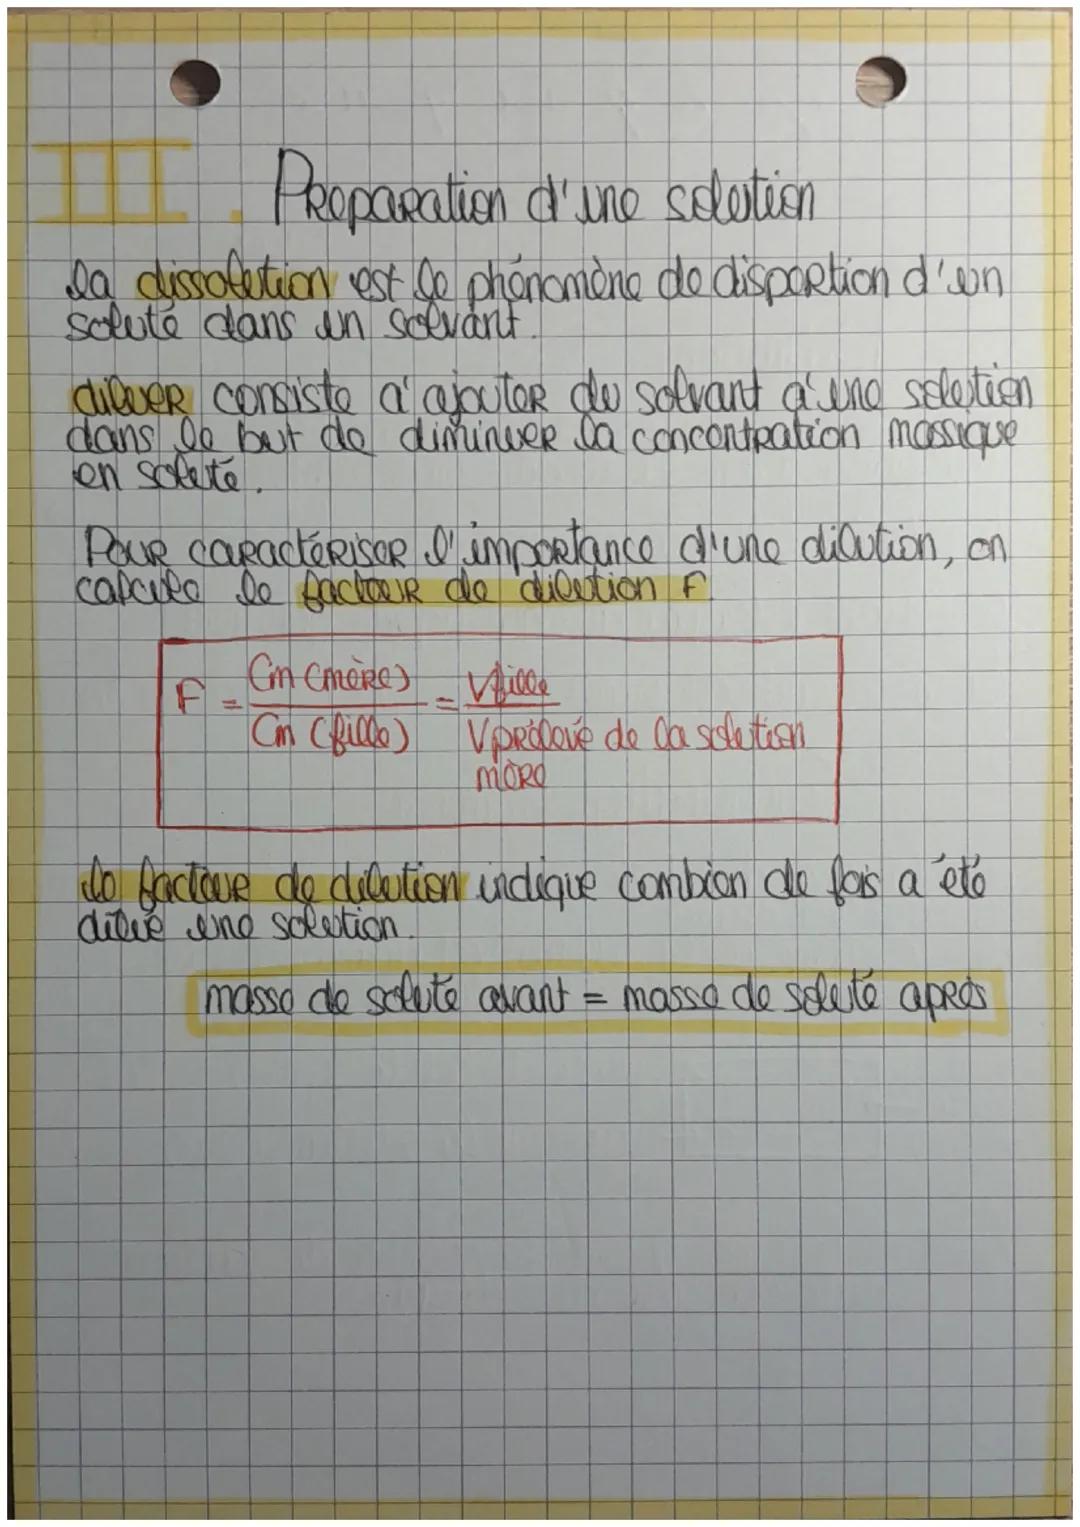 III. Préparation d'une solution
la dissolution est le phénomène de dispertion d'un
soluté dans un solvant.
diluer consiste a' ajouter du solvant a' une solution
dans le but de diminuer la concentration massique
en soluté.
Pour caractériser l'importance d'une dilution, on
calcule le facteur de dilution F.
F = Cm (mère) / Cm (fille) = Vfille / Vprélevé de la solution
mère
le facteur de dilution indique combien de fois a été
dilué une solution.
masse de soluté avant = masse de soluté après